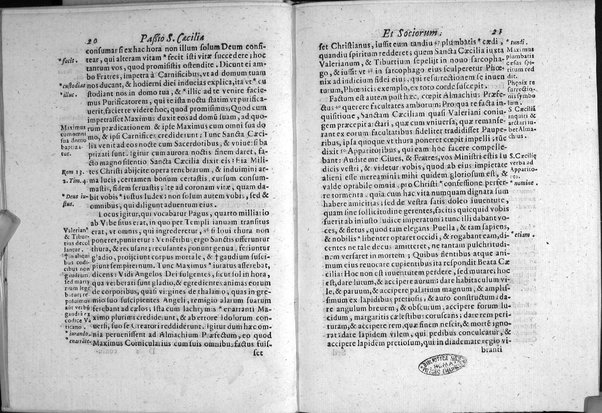 20
Passio S. Cæcilia
consumar: si ex hac hora non illum solum Deum confi-
tear, qui alteram vitam facit isti vitæ succedere: hoc
tantum vos, quod promisistis ostendite. Dicunt ei am-
bo Fratres, impetra à Carnificibus, vt ad domum tuam
nos ducant, & hodierni diei inducias explica, ita vt cu-
stodiant nos in domo tua, & illic ad te venire facie-
mus Purificatorem, qui te ista nocte statim vt purifica-
uerit, faciet te videre hoc, quod promisimus. Quod cum
impetrasset Maximus: duxit eos ad domũ suam, ad quo-
rum prædicationem & ipse Maximus cum omni sua do-
mo, & ipsi Carnifices crediderunt. Tunc Sancta Cæci-
lia venit ad eos nocte cum Sacerdotibus, & vniuersi ba-
ptizati sunt. Igitur cum aurora nocti finem daret, fa-
cto magno silentio Sancta Cæcilia dixit eis: Eia Mili-
tes Christi abijcite opera tenebrarum, & induimini ar-
ma lucis, certamen bonum certastis, cursum consum-
mastis, fidem seruastis: ite ad coronam vitæ, quam da-
bit vobis iustus Iudex: non solùm autem vobis, sed &
omnibus, qui diligunt aduentum eius.
Locus igitur, qui vocabatur Pagus, quarto milliario
ab Vrbe situs erat, in quo per Templi ianuam transitus
erat, vt omnis, qui ingrederetur, si Ioui thura non
poneret, puniretur: Venientibus ergo Sanctis offeruntur
thura, & recusant: recusantes ponunt genua, feriuntur
gladio, proijciunt corpus mortale, & gaudium susci-
piunt sempiternum. Tunc Maximus iuratus asserebat,
dicens: Vidi Angelos Dei fulgentes, sicut sol in hora,
qua verberati sunt gladio, & egredientes animas eorum
de corporibus, quasi virgines de thalamo, quas in gre-
mio suo suscipientes Angeli, remigio alarum suarum
ferebant ad cælos: ista cum lachrymis enarranti Ma-
ximo plurimi crediderunt, & ab errore Idolorum con-
uersi, suo se Creatori reddiderunt. Igitur dum hæc om-
nia peruenissent ad Almachium Præfectum, eo quod
Maximus Cornicularius cum suis omnibus factus fuis-
set
facit.
custodiant
illuc.
Maximus
cum omni
sua domo
baptiza-
tur.
Rom 13.
2. Tim. 4.
Deus iu-
stus.
Valerian°
& Tibur-
tius deca-
pitantur.
iurando.
enarrāte
Et Sociorum.
21
set Christianus, iussit eum tandiu plumbatis cædi,
quandiu spiritum redderet: quem Sancta Cæcilia iuxta
Valerianum, & Tiburtium sepeliit in nouo sarcopha-
go, & iussit vt in sarcophago eius sculperetur Phœ-
nix ad indicium fidei eius, qui resurrectionem se inuen-
turum, Phœnicis exemplo, ex toto corde suscepit.
Factum est autem post hæc, cœpit Almachius Præfe-
ctus quærere facultates amborum: Pro qua re facta in-
quisitione, Sanctam Cæciliam quasi Valeriani coniu-
gem præcepit artari; quæ cum vniuersa, quæ remanse-
rant ex eorum facultatibus fideliter tradidisset Paupe-
ribus, ipsa quoque vt thura poneret cœpit impelli: tunc
dixit Apparitoribus, qui eam hoc facere compelle-
bant: Audite me Ciues, & Fratres, vos Ministri estis Iu
dicis vestri, & videtur vobis, quod ab eius impietate
alieni esse mereamini: mihi quidem gloriosum est, &
valde optabile omni, pro Christi confessione perfer-
re tormenta. quia cum hac vita nunquam dignata sum
habere amicitias, sed de vestra satis doleo iuuentute,
quam sine sollicitudine gerentes, facitis quicquid vobis
fuerit ab iniusto Iudice imperatum: tunc illi dabant vo-
ces, & fletus, quod tam elegans Puella, & tam sapiens,
& nobilis libenter optaret occidi, & rogabant eam, di-
centes ne tale decus amitteret, ne tantam pulchritudi-
nem versaret in mortem; Quibus flentibus atque ani-
mum eius reuocare cupientibus ita respondit Beata Cæ
cilia: Hoc non est iuuentutem perdere, sed mutare: hoc
est, dare lutum, & accipere aurum: dare habitaculum vi-
le, & paruum, & accipere palatium magnum, & amplissi-
mum ex lapidibus pretiosis, & auro constructum: da-
re angulum breuem, & obscurum, accipere forum lu-
cidum, margaritis cælestibus corruscans: dare rem peri-
turam, & accipere rem, quæ finem nescit, & mortē igno-
rat: dare lapidem vilem, qui pedibus conculcatur, &
accipere lapidem pretiosum, qui in diademate regio vi-
branti
tundi.
Maximus
plumbatis
cæsus
Phœnix re
surrectio-
nis
symbolum.
S. Cæcilia
inquiri
ab Alma-
chius.
S. Cæciliæ
verba ad
Apparit.
nomine.
etiam